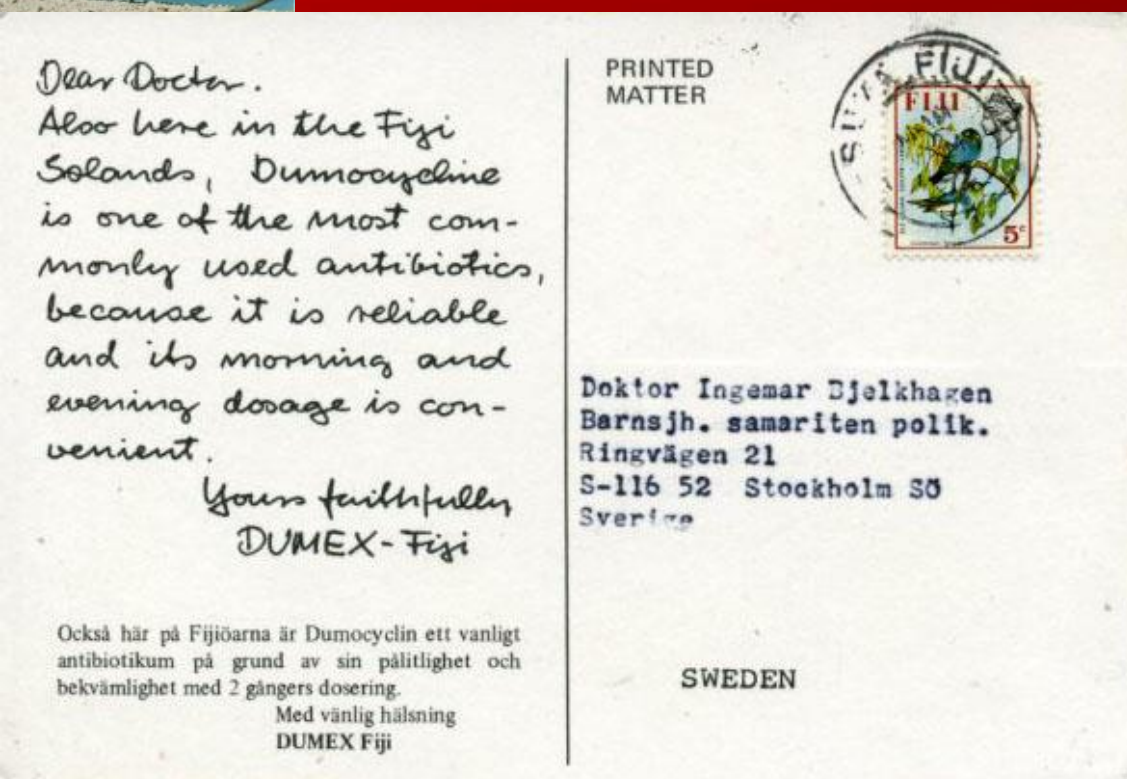 Dear Doctor.
Also here in the Fiji
Islands, Dumocycline
is one of the most com-
monly used antibiotics,
because it is reliable
and its morning and
evening dosage is con-
venient.
Yours faithfully
DUMEX-Fiji
Också här på Fijiöarna är Dumocyclin ett vanligt
antibiotikum på grund av sin pålitlighet och
bekvämlighet med 2 gångers dosering.
Med vänlig hälsning
DUMEX Fiji
PRINTED
MATTER
SUVA FIJI
FIJI
5c
Doktor Ingemar Bjelkhagen
Barnsjh. samariten polik.
Ringvägen 21
S-116 52 Stockholm SÖ
Sverige
SWEDEN